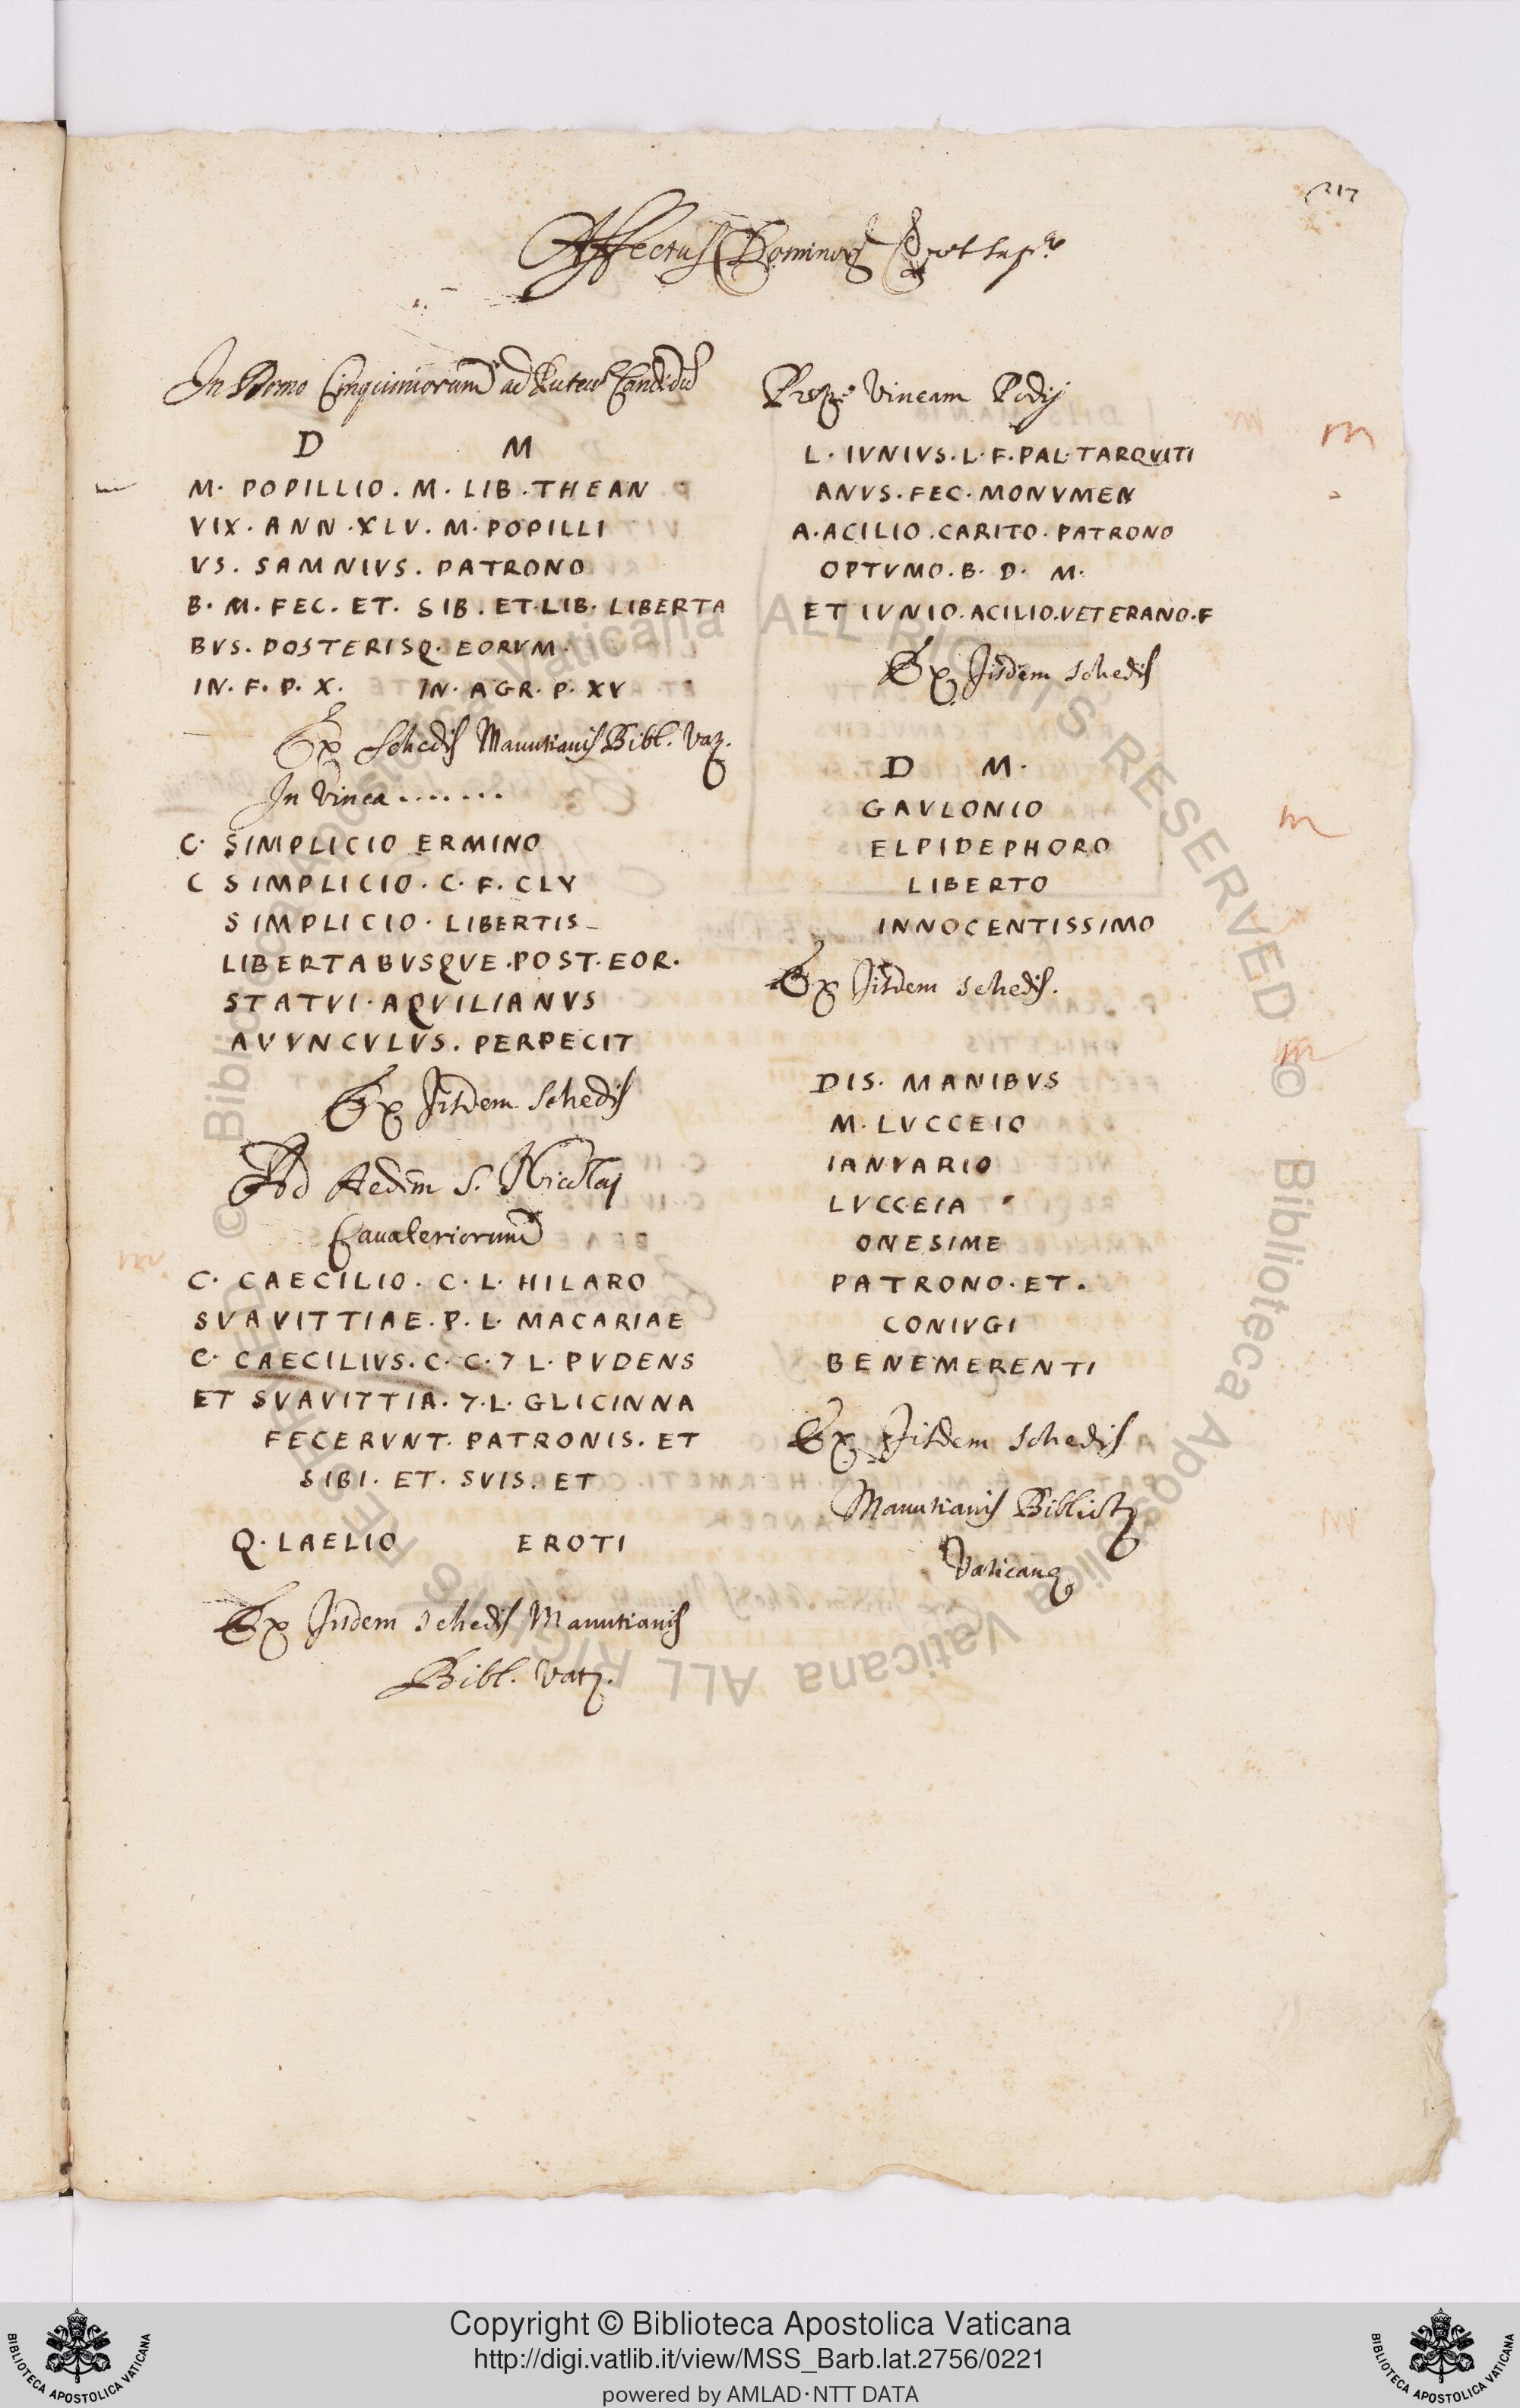 217
Affectus Dominor
In Domo Cinquiniorum ad Puteu Candidu
D M
M. POPILLIO. M. LIB. THEAN
VIX. ANN. XLV. M. POPILLI
VS. SAMNIVS. PATRONO
B. M. FEC. ET. SIB. ET. LIB. LIBERTA
BVS. POSTERISQ. EORVM.
IN. F. P. X. IN. AGR. P. XV
Ex Schedis Manutianis Bibl. Vat.
In Vinea .......
C. SIMPLICIO ERMINO
C SIMPLICIO. C. F. CLV
SIMPLICIO. LIBERTIS
LIBERTABVSQVE. POST. EOR.
STATVI. AQVILIANVS
AVVNCVLVS. PERPECIT
Ex Jisdem Schedis
Ad Aedem S. Nicolaj
Caualeriorum
C. CAECILIO. C. L. HILARO
SVAVITTIAE. P. L. MACARIAE
C. CAECILIVS. C. C. 7 L. PVDENS
ET SVAVITTIA. 7. L. GLICINNA
FECERVNT. PATRONIS. ET
SIBI. ET. SVIS. ET
Q. LAELIO EROTI
Ex Jisdem schedis Manutianis
Bibl. Vat.
Prope Vineam Podij
L. IVNIVS. L. F. PAL. TARQVITI
ANVS. FEC. MONVMEN
A. ACILIO. CARITO. PATRONO
OPTVMO. B. D. M.
ET IVNIO. ACILIO. VETERANO. F
Ex Jisdem schedis
D M.
GAVLONIO
ELPIDEPHORO
LIBERTO
INNOCENTISSIMO
Ex Jisdem schedis.
DIS. MANIBVS
M. LVCCEIO
IANVARIO
LVCCEIA
ONESIME
PATRONO. ET.
CONIVGI
BENEMERENTI
Ex Jisdem schedis
Manutianis Bibliot
Vaticanę
m
m
m
© Biblioteca Apostolica Vaticana ALL RIGHTS RESERVED © Biblioteca Apostolica Vaticana ALL RIGHTS RESERVED
Copyright © Biblioteca Apostolica Vaticana
http://digi.vatlib.it/view/MSS_Barb.lat.2756/0221
powered by AMLAD·NTT DATA
BIBLIOTECA APOSTOLICA VATICANA
BIBLIOTECA APOSTOLICA VATICANA